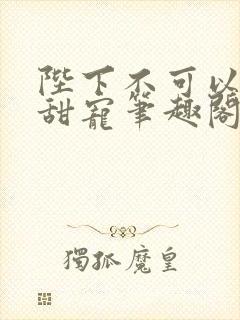 陛下不可以
甜寵筆趣閣
獨孤魔皇